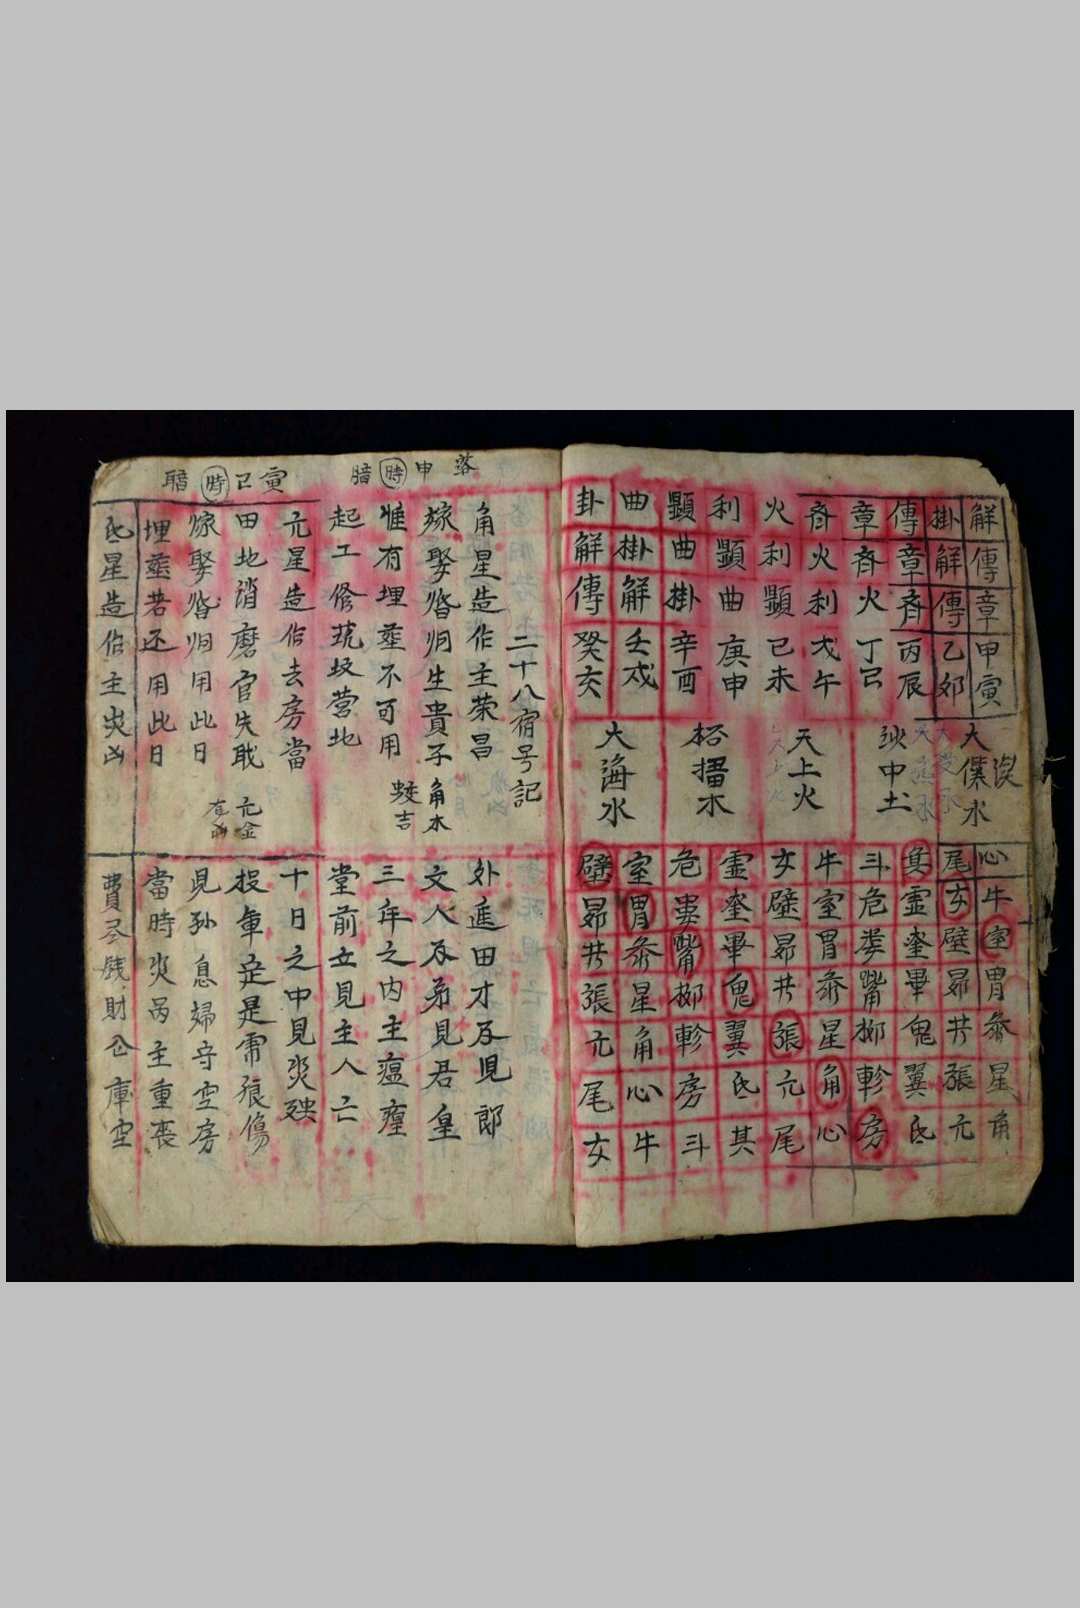 解傳章甲寅
掛解傳乙卯
傳章斉丙辰
章斉火丁巳
斉火利戊午
火利顯己未
利顯曲庚申
顯曲掛辛酉
曲掛解壬戌
卦解傳癸亥
大溪水
沙中土
天上火
柘榴木
大海水
心牛室胃参星角
尾女壁昴井張亢
箕虚奎畢鬼翼氐
斗危娄觜柳軫房
牛室胃参星角心
女壁昴井張亢尾
虚奎畢鬼翼氐其
危娄觜柳軫房斗
室胃参星角心牛
壁昴井張亢尾女
落申時暗
寅巳時暗
二十八宿号記
角星造作主荣昌
外進田才及見郎
嫁娶婚姻生貴子
文人及弟見君皇
角木蛟吉
惟有埋葬不可用
三年之內主瘟瘟
起工修筑坟营地
堂前立見主人亡
亢星造作去房當
十日之中見災殃
田地消磨官失職
投軍定是虎狼傷
亢金
嫁娶婚姻用此日
児孙息婦守空房
埋葬若还用此日
當時災禍主重喪
氐星造作主災凶
費尽钱財仓庫空